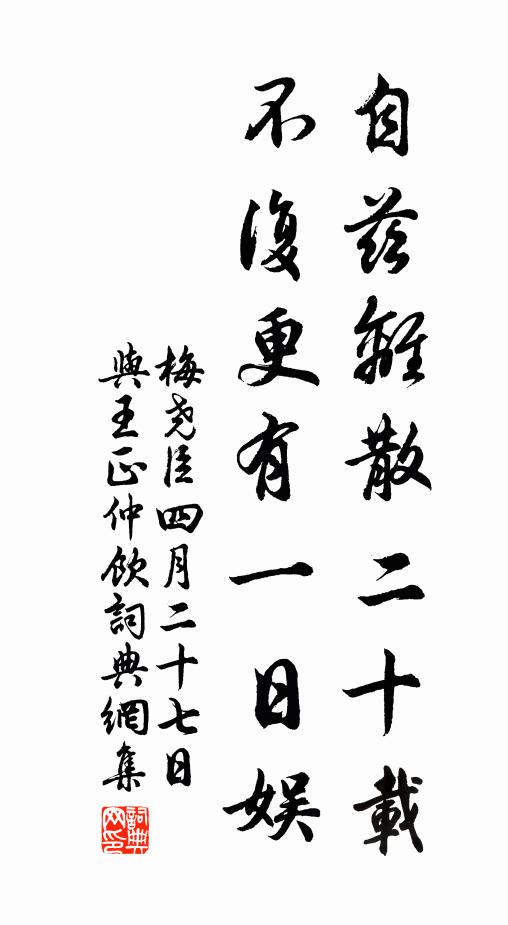 自茲離散二十載
不復更有一日娛
梅堯臣四月二十七日
與王正仲飲詞典網集
詞典網印